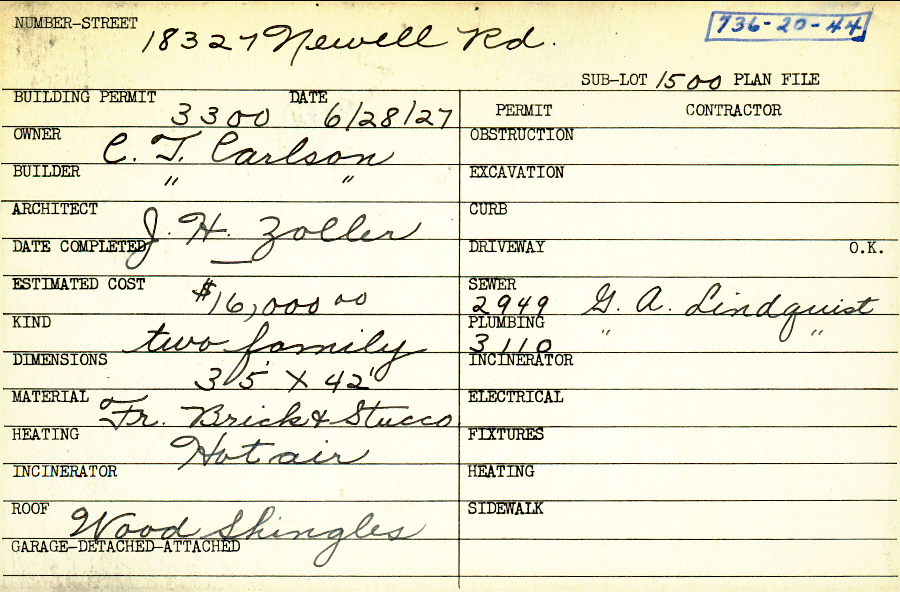 NUMBER-STREET 18327 Newell Rd. 736-20-44
SUB-LOT 1500 PLAN FILE
BUILDING PERMIT 3300 DATE 6/28/27
OWNER C. T. Carlson
BUILDER " "
ARCHITECT J. H. Zoller
DATE COMPLETED —
ESTIMATED COST $16,000 00
KIND two family
DIMENSIONS 35' X 42'
MATERIAL Fr. Brick & Stucco
HEATING Hot air
INCINERATOR
ROOF Wood Shingles
GARAGE-DETACHED-ATTACHED
PERMIT CONTRACTOR
OBSTRUCTION
EXCAVATION
CURB
DRIVEWAY O.K.
SEWER 2949 G. A. Lindquist
PLUMBING 3110 " "
INCINERATOR
ELECTRICAL
FIXTURES
HEATING
SIDEWALK